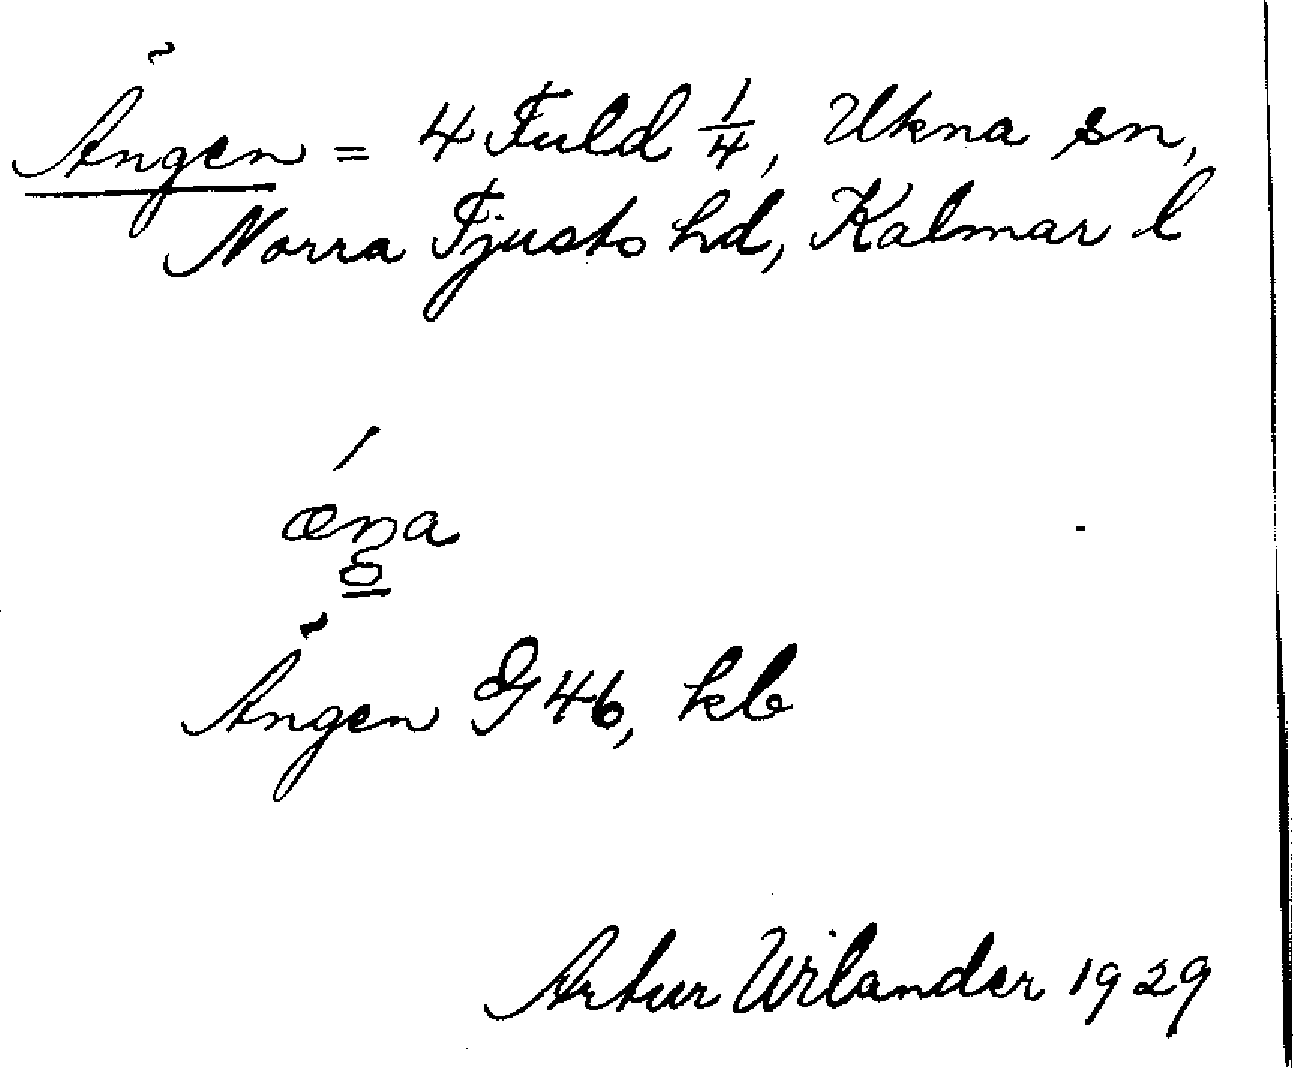 Ängen = 4 Fuld 1/4, Ukna sn,
Norra Tjusts hd, Kalmar l
ǽŋa
Ängen G 46, kb
Artur Wilander 1929